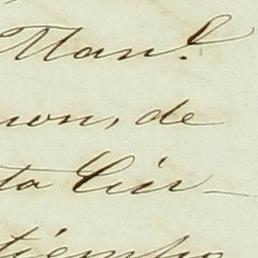 Man.l
non, de
ta Ciu-
tiempo